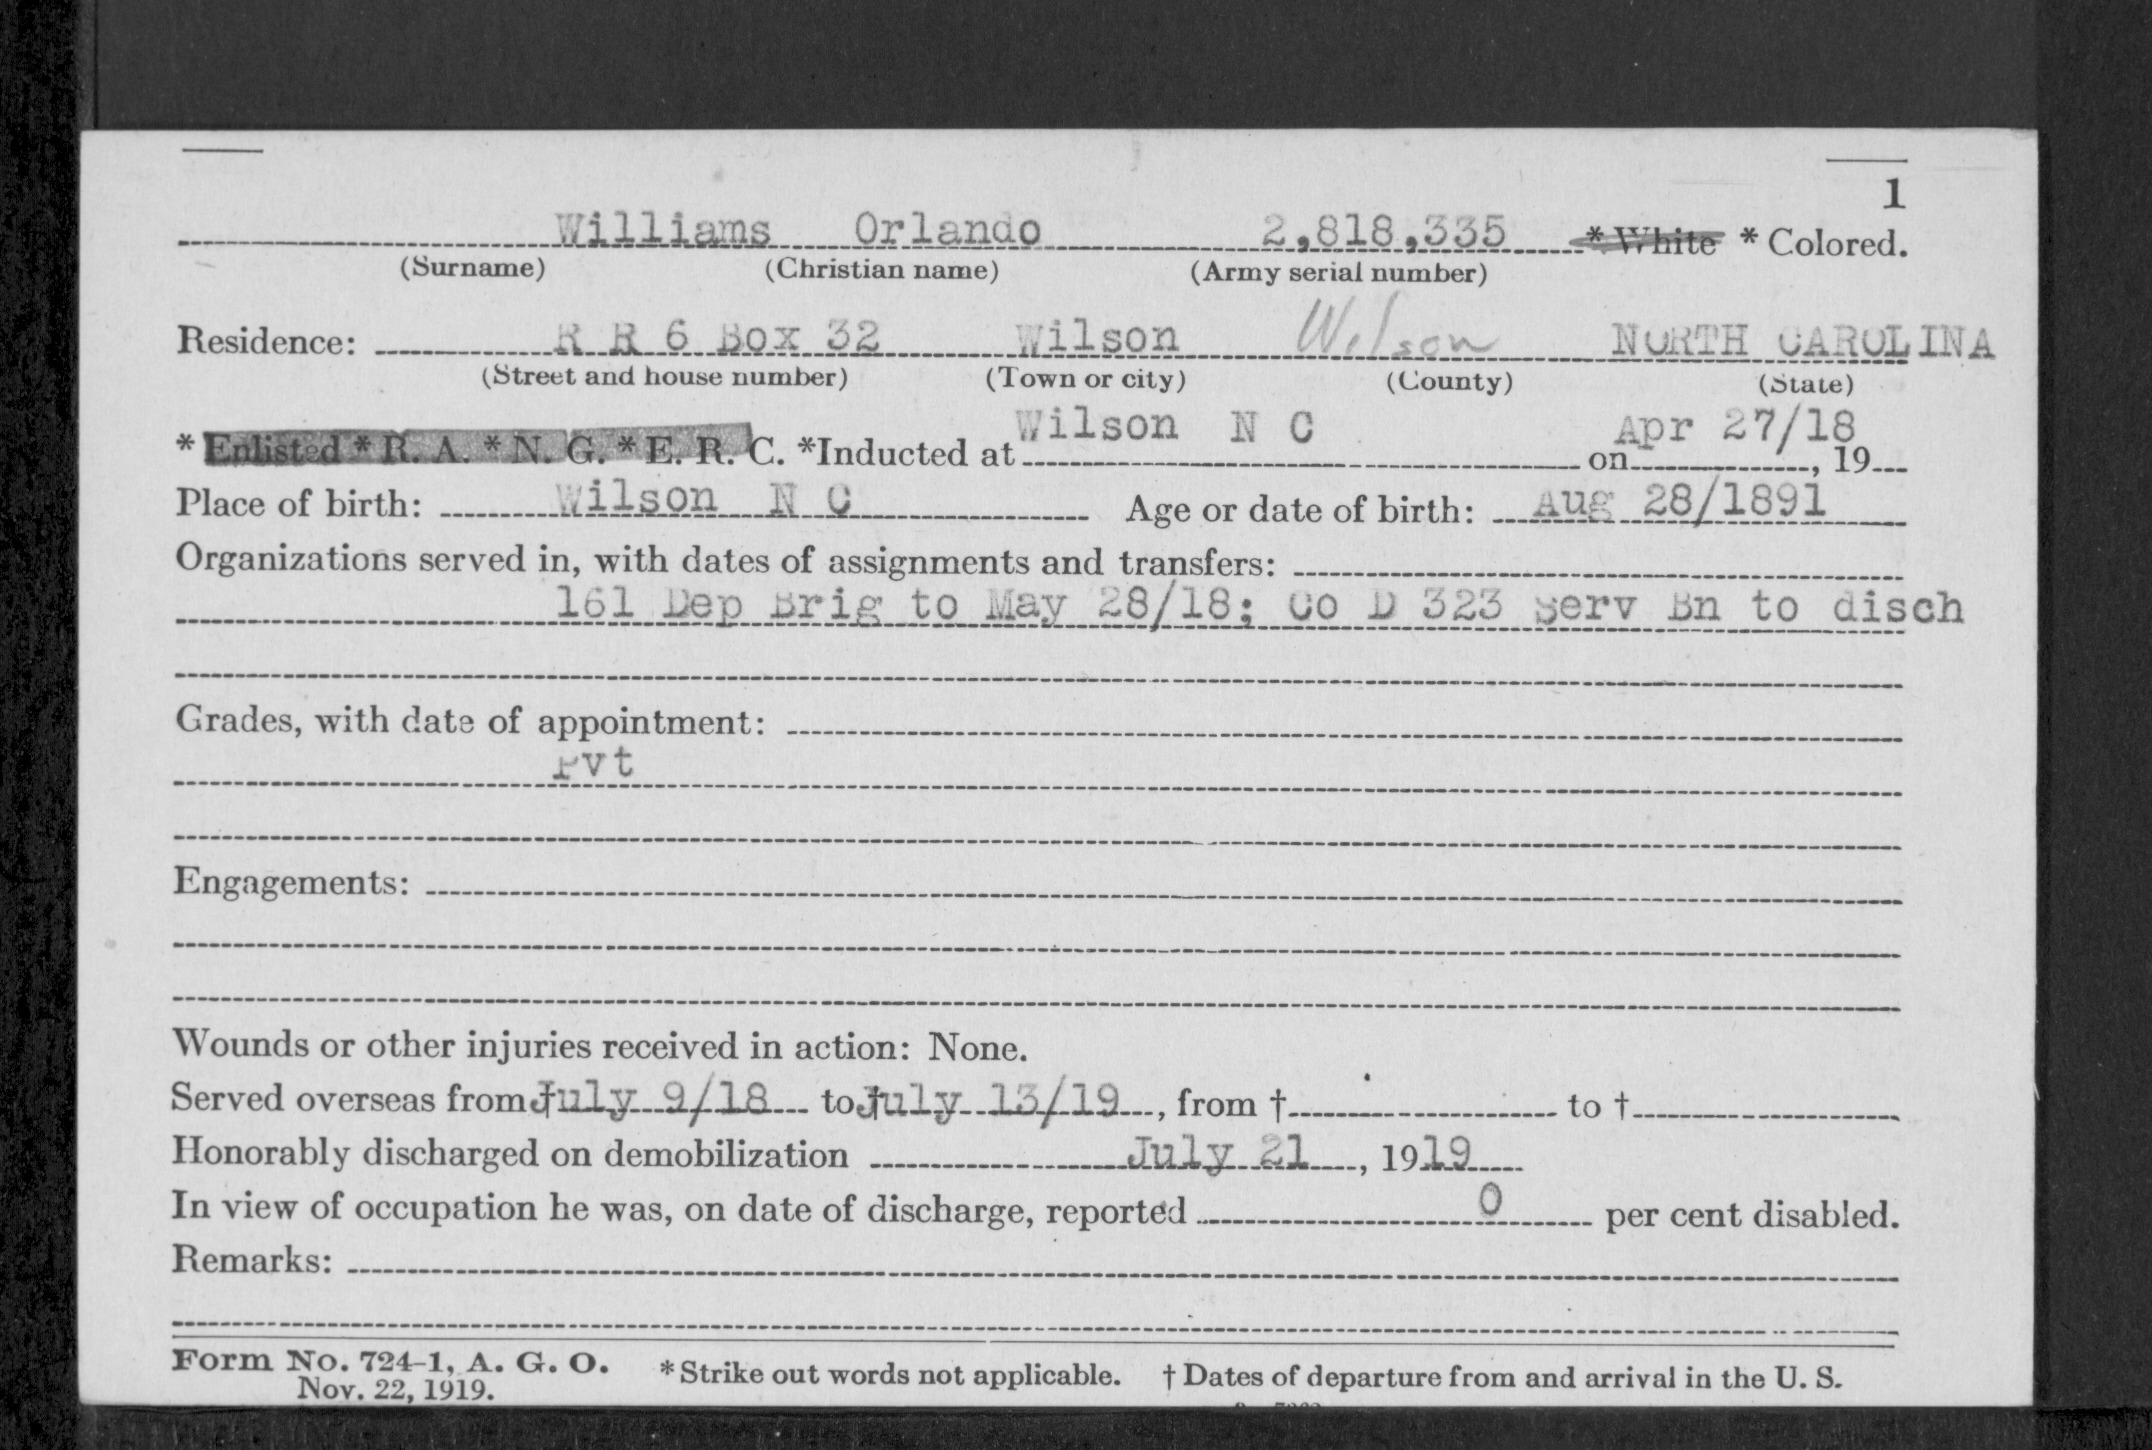 1
Williams Orlando 2,818,335 * White * Colored.
(Surname) (Christian name) (Army serial number)
Residence: R R 6 Box 32 Wilson Wilson NORTH CAROLINA
(Street and house number) (Town or city) (County) (State)
* Enlisted * R. A. * N. G. * E. R. C. *Inducted at Wilson N C on Apr 27/18, 19
Place of birth: Wilson N C Age or date of birth: Aug 28/1891
Organizations served in, with dates of assignments and transfers:
161 Dep Brig to May 28/18; Co D 323 Serv Bn to disch
Grades, with date of appointment:
Pvt
Engagements:
Wounds or other injuries received in action: None.
Served overseas from † July 9/18 to † July 13/19, from † to †
Honorably discharged on demobilization July 21, 1919
In view of occupation he was, on date of discharge, reported 0 per cent disabled.
Remarks:
Form No. 724-1, A. G. O. * Strike out words not applicable. † Dates of departure from and arrival in the U. S.
Nov. 22, 1919.